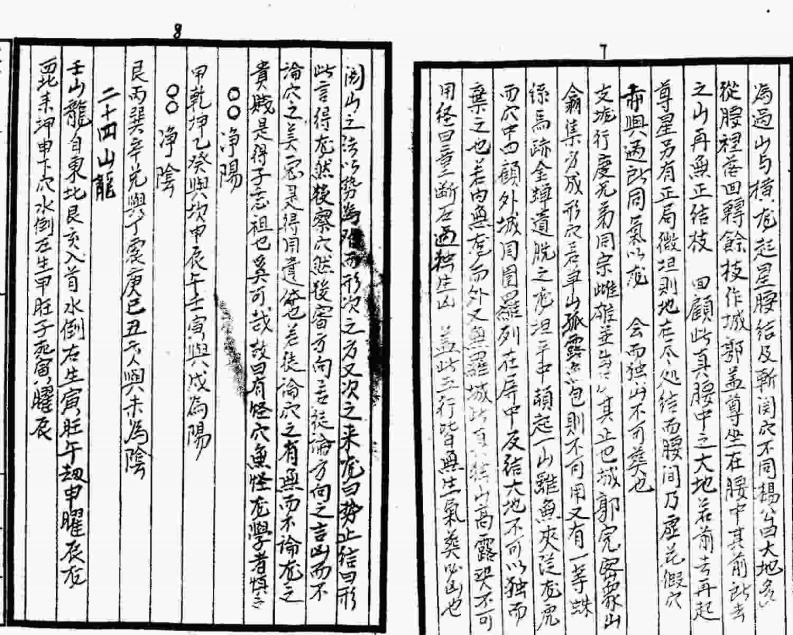 7
為過山与橫龙起星腰結及斬関穴不同楊公曰大地多
從腰裡落回轉餘枝作城郭盖尊坐在腰中其前所去
之山再無正結枝 回顧此真腰中之大地若前去再起
尊星另有正局微坦則地在尽処結而腰間乃虛花假穴
第與過所同氣以龙 会而独山不可葬也
支龙行度无弟同宗雌雄並 其正也城郭完密眾山
翕集方成形穴若单山孤露 包則不可用又有一等蛛
絲馬跡金蟬遺脫之龙坦平中頓起一山雖無夾從龙虎
而穴中四顧外城周圍羅列在屏中反結大地不可以独而
棄之也若内無龙而外又無羅城此真独山高露決不可
用経曰童断石過独生凶 盖此五行皆無生氣葬必凶也
8
関山之法以势為 而形次之方又次之来龙曰势止結曰形
此言得龙然後察穴然後審方向若徒論方向之吉凶而不
論穴之美惡是得用遺体也若徒論穴之有無而不論龙之
貴賤是得子忘祖也奚可哉故曰有怪穴無怪龙學者慎之
○○淨陽
甲乾坤乙癸與坎申辰午壬寅與戌為陽
○○淨陰
艮丙巽辛兑與丁震庚巳丑亥與未為陰
二十四山龍
壬山龍自東北艮亥入首水倒右生寅旺午劫申曜辰龙
西北未坤申下穴水倒左生甲旺子 寅曜辰